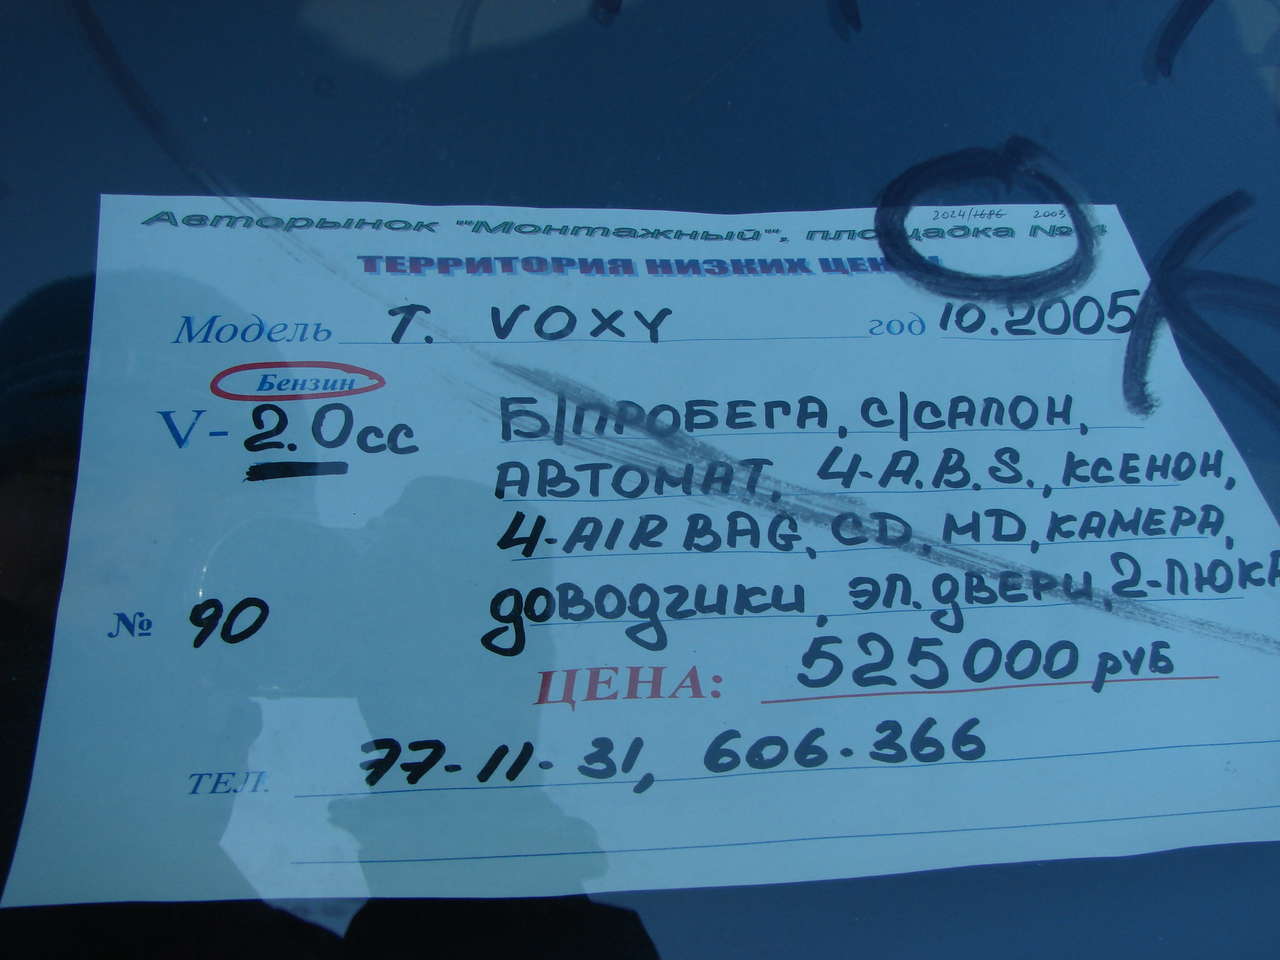 2024/1686 2003
Авторынок "Монтажный", площадка №
ТЕРРИТОРИЯ НИЗКИХ ЦЕН
Модель Т. VOXY год 10.2005
Бензин
V- 2.0 cc Б/ПРОБЕГА, С/САЛОН,
АВТОМАТ, 4-A.B.S., КСЕНОН,
4-AIR BAG, CD, MD, КАМЕРА,
№ 90 ДОВОДЧИКИ, ЭЛ. ДВЕРИ, 2-ЛЮКА
ЦЕНА: 525000 РУБ
ТЕЛ. 77-11-31, 606-366
ОК